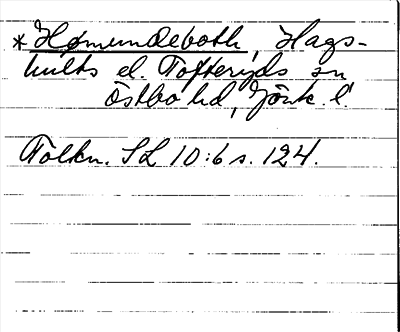 *Hømundeboth, Hags-
hults el. Tofteryds sn
Östbo hd, Jönk. l.
Tolkn. SL 10:6 s. 124.